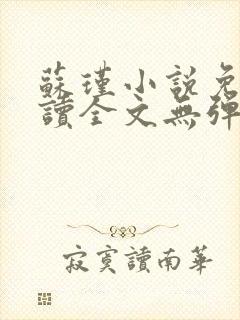 蘇瑾小說免
讀全文無彈
寂寞讀南華